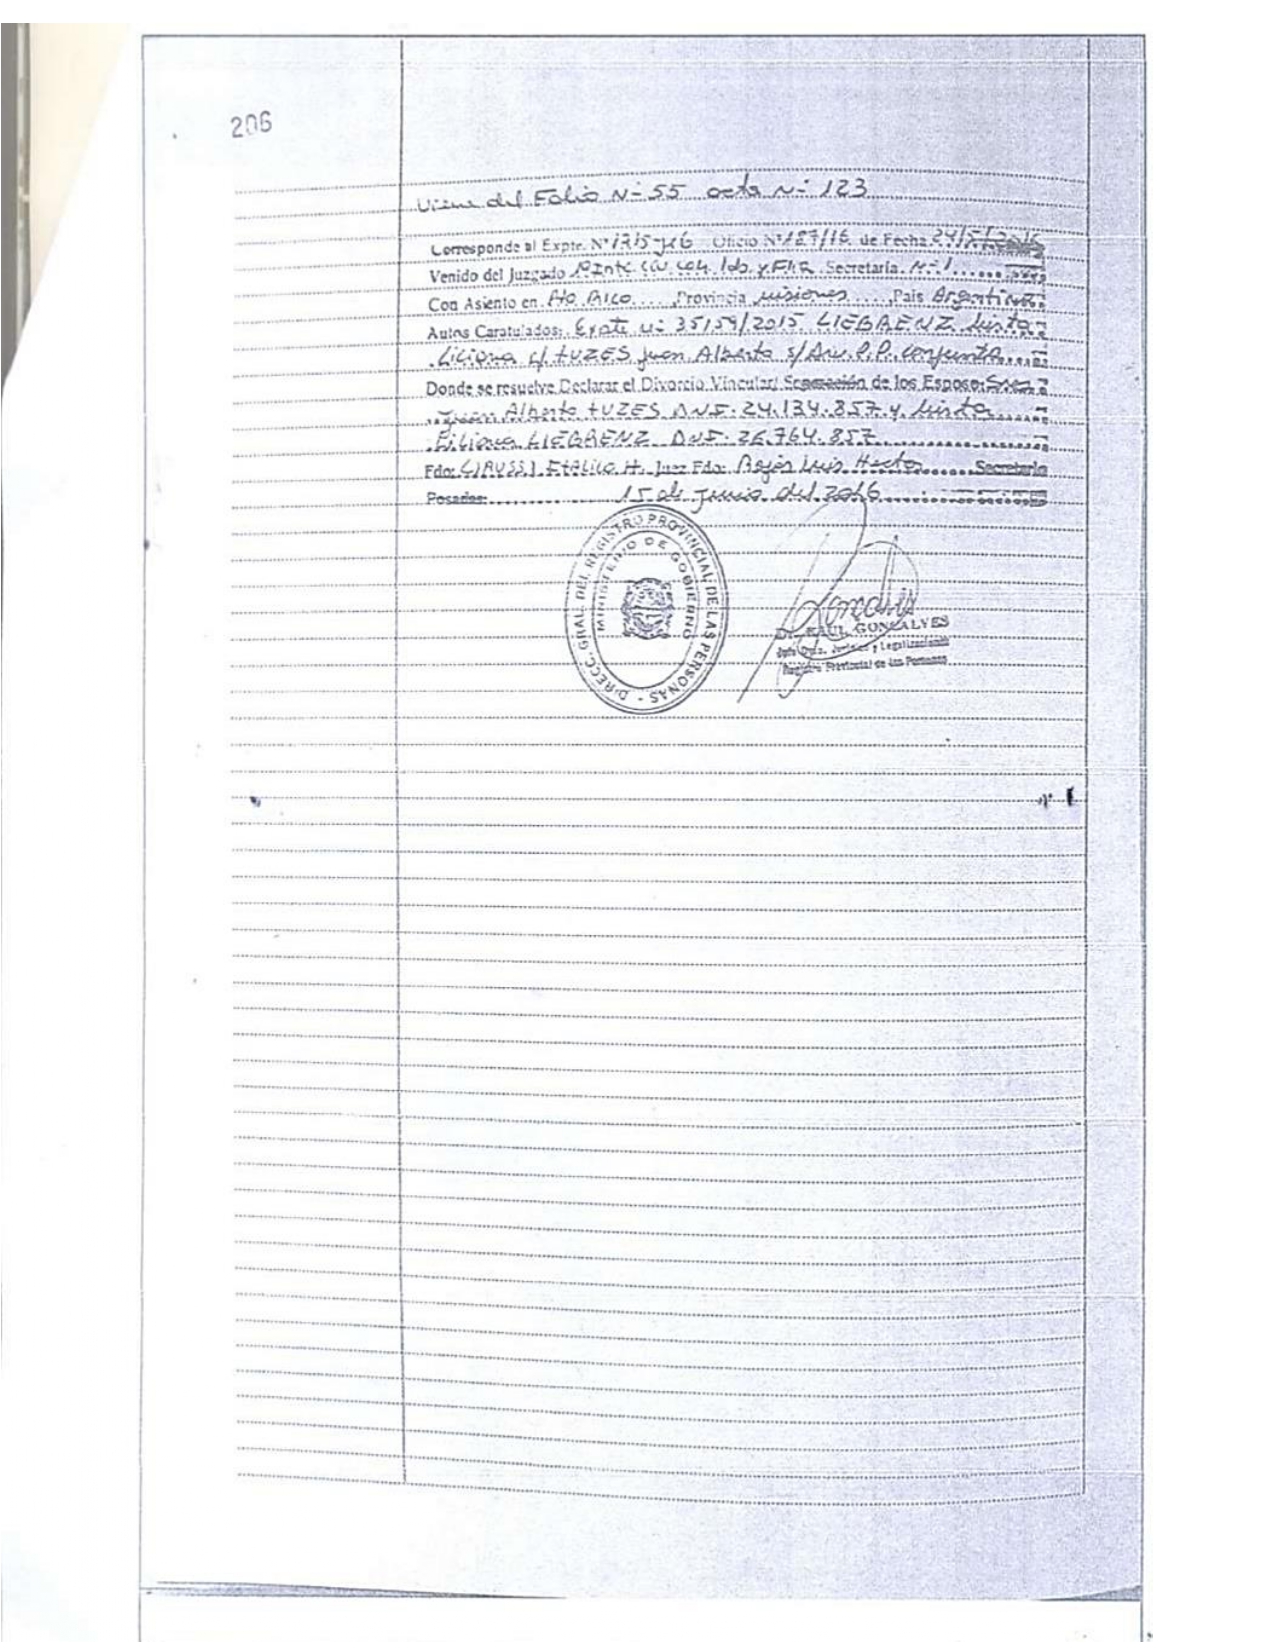 206
Viene del Folio Nº 55 acta Nº 123
Corresponde al Expte. Nº Oficio Nº 187/16 de Fecha 24/5/2016
Venido del Juzgado Secretaría Nº 1
Con Asiento en Pto Rico Provincia Misiones País Argentina
Autos Caratulados: Expte Nº 35159/2015 LIEBRENZ
c/ TUZES Juan Alberto s/ P.P. conjunta
Donde se resuelve Declarar el Divorcio Vincular/ Separación de los Esposos: Sres
Juan Alberto TUZES DNI. 24.134.857 y
LIEBRENZ DNI. 26.764.857
Fdo: H. Juez Fdo: Rojas Luis Hector Secretario
Posadas: 15 de Junio del 2016
DIRECC. GRAL. DEL REGISTRO PROVINCIAL DE LAS PERSONAS -
MINISTERIO DE GOBIERNO
Dr. RAUL GONCALVES
Jefe Dpto. Jurídico y Legalizaciones
Registro Provincial de las Personas